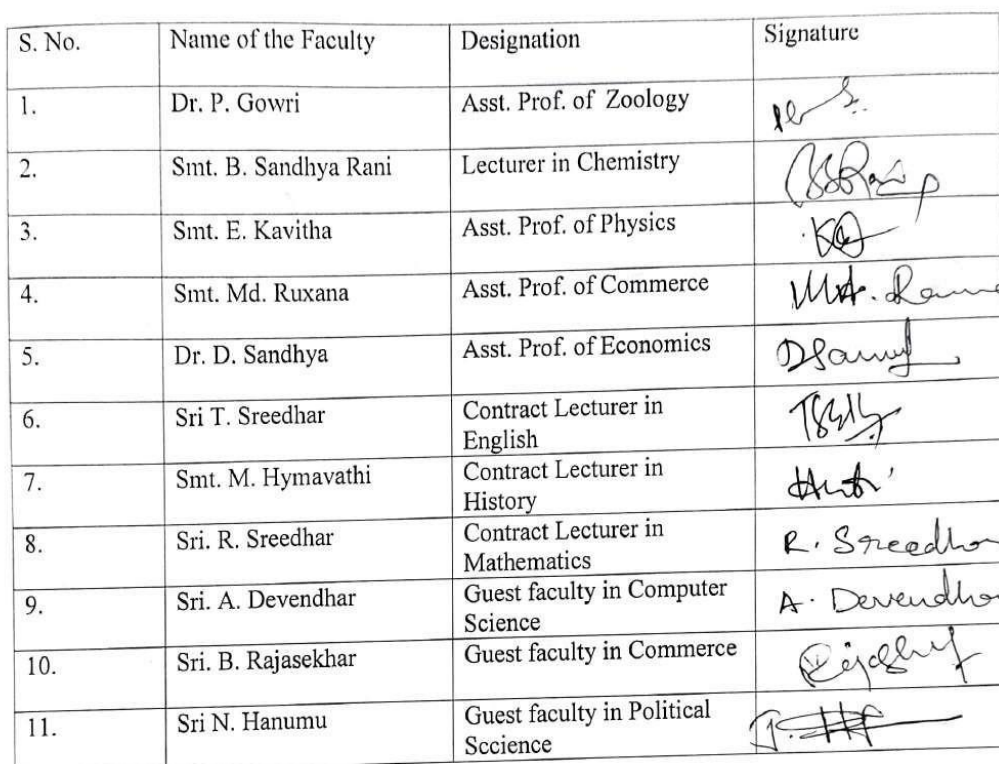 S. No. Name of the Faculty Designation Signature
1. Dr. P. Gowri Asst. Prof. of Zoology
2. Smt. B. Sandhya Rani Lecturer in Chemistry
3. Smt. E. Kavitha Asst. Prof. of Physics
4. Smt. Md. Ruxana Asst. Prof. of Commerce
5. Dr. D. Sandhya Asst. Prof. of Economics
6. Sri T. Sreedhar Contract Lecturer in
English
7. Smt. M. Hymavathi Contract Lecturer in
History
8. Sri. R. Sreedhar Contract Lecturer in
Mathematics R. Sreedhar
9. Sri. A. Devendhar Guest faculty in Computer
Science A. Devendhar
10. Sri. B. Rajasekhar Guest faculty in Commerce
11. Sri N. Hanumu Guest faculty in Political
Sccience